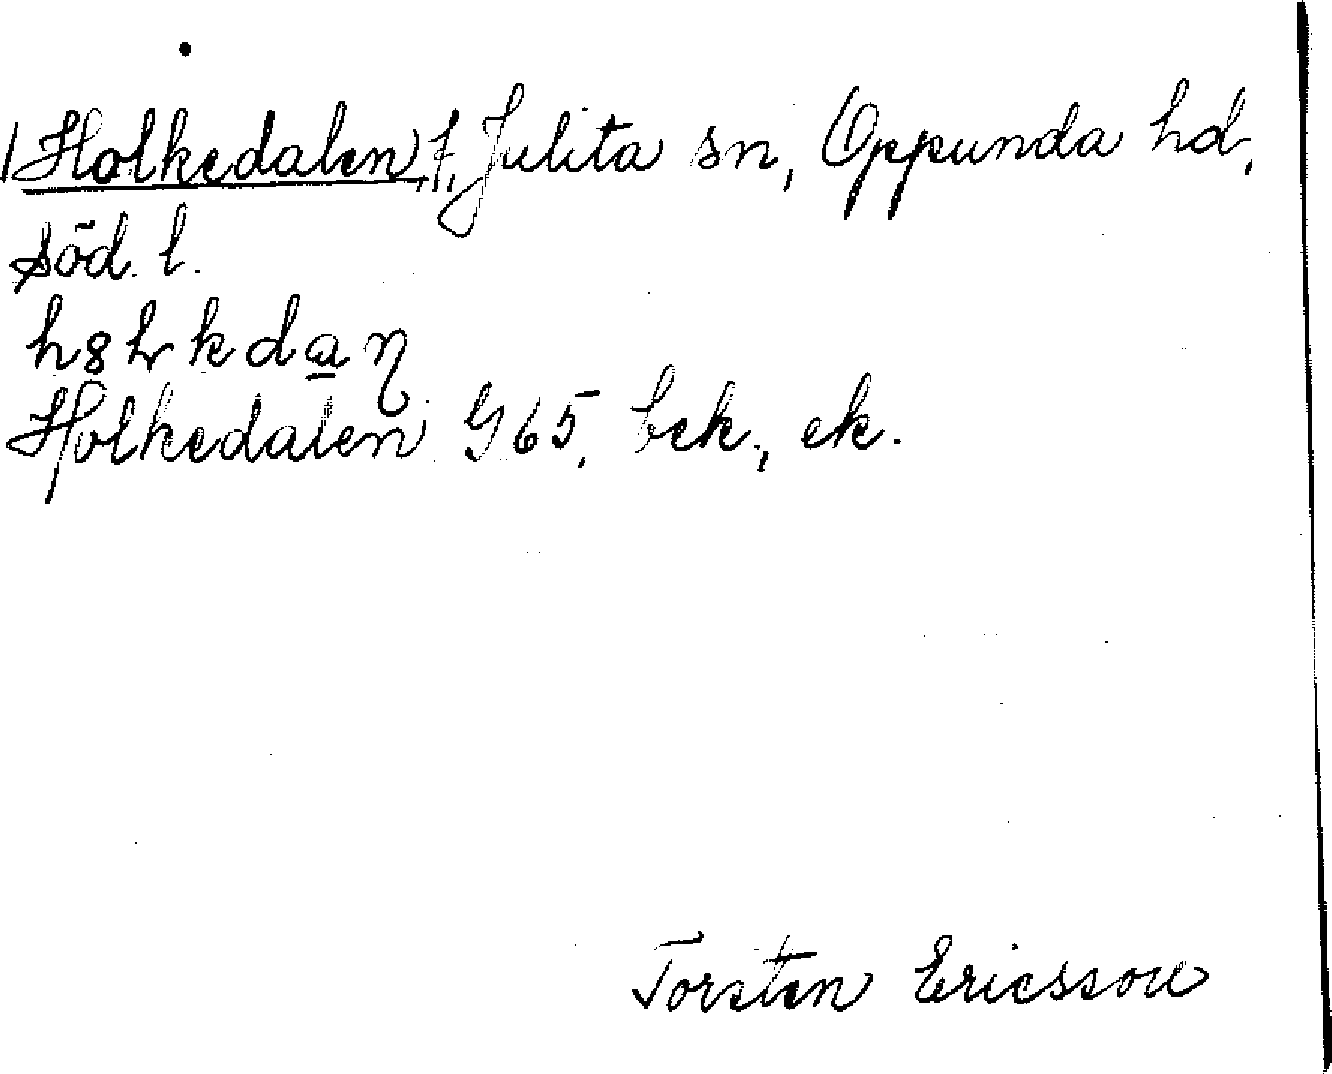 Holkedalen, f, Julita sn, Oppunda hd,
Söd. l.
Holkedalen G 65, bek., ek.
Torsten Ericsson